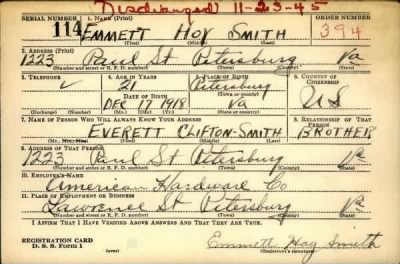 Discharged 11-23-45
SERIAL NUMBER 1. NAME (Print) ORDER NUMBER
114 EMMETT HOY SMITH 394
(First) (Middle) (Last)
2. ADDRESS (Print)
1223 Paul St Petersburg Va
(Number and street or R. F. D. number) (Town) (County) (State)
3. TELEPHONE 4. AGE IN YEARS 5. PLACE OF BIRTH 6. COUNTRY OF CITIZENSHIP
21 Petersburg
DATE OF BIRTH (Town or county)
DEC 17 1918 Va US
(Exchange) (Number) (Mo.) (Day) (Yr.) (State or country)
7. NAME OF PERSON WHO WILL ALWAYS KNOW YOUR ADDRESS 8. RELATIONSHIP OF THAT PERSON
EVERETT CLIFTON-SMITH BROTHER
(Mr., Mrs., Miss) (First) (Middle) (Last)
9. ADDRESS OF THAT PERSON
1223 Paul St Petersburg Va
(Number and street or R. F. D. number) (Town) (County) (State)
10. EMPLOYER'S NAME
American Hardware Co
11. PLACE OF EMPLOYMENT OR BUSINESS
Lawrence St Petersburg Va
(Number and street or R. F. D. number) (Town) (County) (State)
I AFFIRM THAT I HAVE VERIFIED ABOVE ANSWERS AND THAT THEY ARE TRUE.
REGISTRATION CARD
D. S. S. FORM 1 Emmett Hoy Smith
(Registrant's signature)